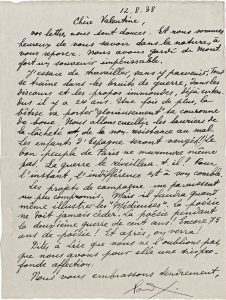 12.8.38
Chère Valentine,
vos lettres nous sont douces. Et nous sommes
heureux de nous savoir dans la nature, à
vous reposer. Nous avons gardé de Mont
fort un souvenir impérissable.
J'essaie de travailler, sans y parvenir. Tout
se traîne dans les bruits de guerre, dans les
discours et les propos immondes, déjà enten
dus il y a 24 ans. Une fois de plus, la
bêtise va porter "glorieusement" sa couronne
de boue. Nous allons cueillir les lauriers de
la lâcheté et de la non-résistance au mal.
Les enfants d'Espagne seront vengés! Le
bon peuple de Paris a
La guerre le réveillera-t-il? Pour
l'instant, l'indifférence est à son comble.
Les projets de campagne me paraissent
un peu compromis. Mais il faudra quand
même illustrer les "Médieuses". La poésie
ne doit jamais céder. La poésie pendant
la deuxième guerre de cent ans! Encore 75
ans de poésie! Et après, on verra!
Dites à Lise que nous ne l'oublions pas,
que nous avons pour elle une très pro-
fonde affection.
Nous vous embrassons tendrement,